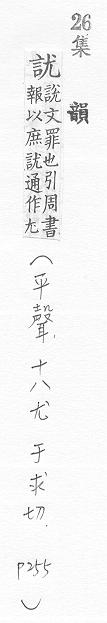 26
集
韻
訧
說文罪也引周書
報以庶訧通作尤
（平聲，十八尤 于求切． p255）